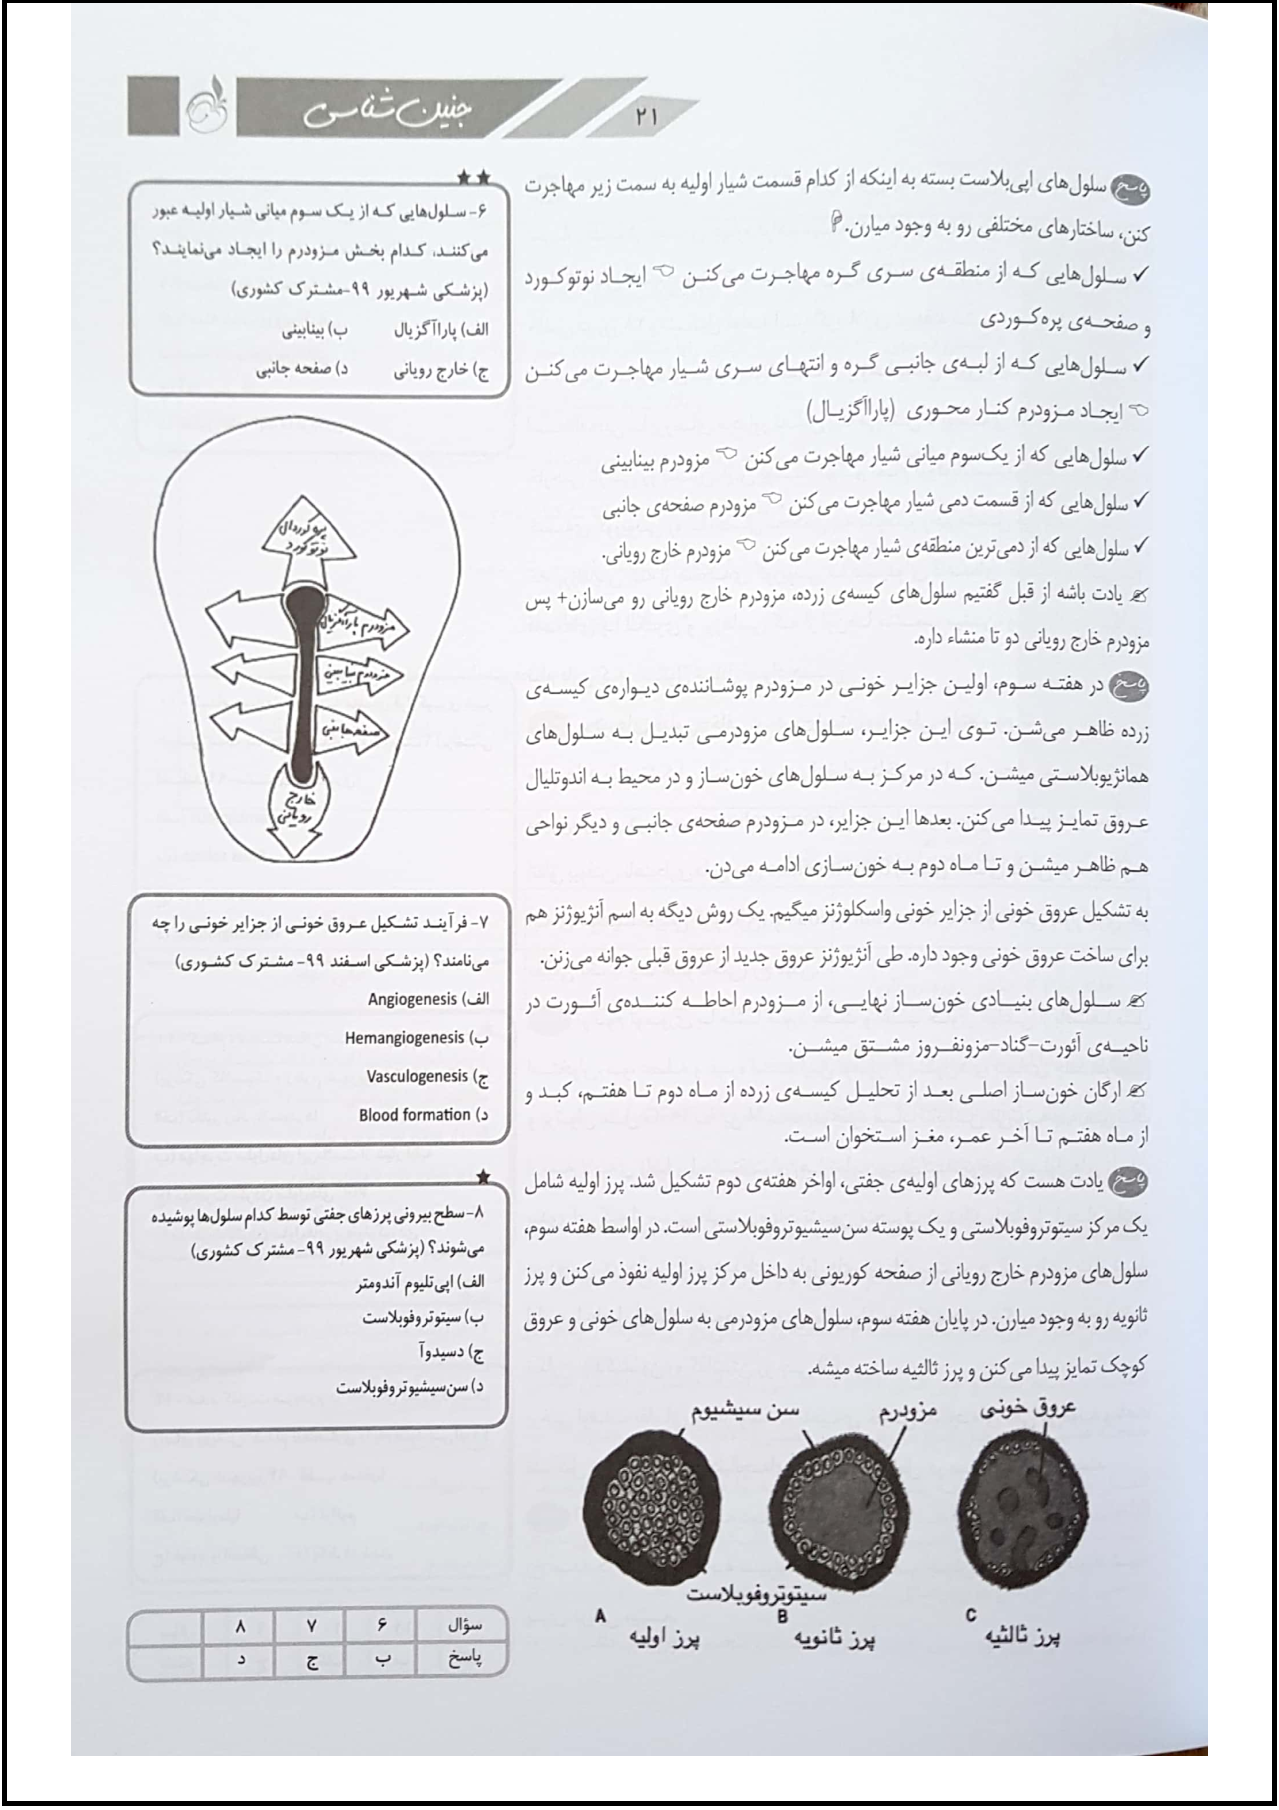 جنین‌شناسی
۲۱
پاسخ سلول‌های اپی‌بلاست بسته به اینکه از کدام قسمت شیار اولیه به سمت زیر مهاجرت
کنن، ساختارهای مختلفی رو به وجود میارن.
✓ سلول‌هایی که از منطقه‌ی سری گره مهاجرت می‌کنن ☜ ایجاد نوتوکورد
و صفحه‌ی پره‌کوردی
✓ سلول‌هایی که از لبه‌ی جانبی گره و انتهای سری شیار مهاجرت می‌کنن
☜ ایجاد مزودرم کنار محوری (پاراآگزیال)
✓ سلول‌هایی که از یک‌سوم میانی شیار مهاجرت می‌کنن ☜ مزودرم بینابینی
✓ سلول‌هایی که از قسمت دمی شیار مهاجرت می‌کنن ☜ مزودرم صفحه‌ی جانبی
✓ سلول‌هایی که از دمی‌ترین منطقه‌ی شیار مهاجرت می‌کنن ☜ مزودرم خارج رویانی.
یادت باشه از قبل گفتیم سلول‌های کیسه‌ی زرده، مزودرم خارج رویانی رو می‌سازن+ پس
مزودرم خارج رویانی دو تا منشاء داره.
پاسخ در هفته سوم، اولین جزایر خونی در مزودرم پوشاننده‌ی دیواره‌ی کیسه‌ی
زرده ظاهر می‌شن. توی این جزایر، سلول‌های مزودرمی تبدیل به سلول‌های
همانژیوبلاستی میشن. که در مرکز به سلول‌های خون‌ساز و در محیط به اندوتلیال
عروق تمایز پیدا می‌کنن. بعدها این جزایر، در مزودرم صفحه‌ی جانبی و دیگر نواحی
هم ظاهر میشن و تا ماه دوم به خون‌سازی ادامه می‌دن.
به تشکیل عروق خونی از جزایر خونی واسکلوژنز میگیم. یک روش دیگه به اسم آنژیوژنز هم
برای ساخت عروق خونی وجود داره. طی آنژیوژنز عروق جدید از عروق قبلی جوانه می‌زنن.
سلول‌های بنیادی خون‌ساز نهایی، از مزودرم احاطه کننده‌ی آئورت در
ناحیه‌ی آئورت-گناد-مزونفروز مشتق میشن.
ارگان خون‌ساز اصلی بعد از تحلیل کیسه‌ی زرده از ماه دوم تا هفتم، کبد و
از ماه هفتم تا آخر عمر، مغز استخوان است.
پاسخ یادت هست که پرزهای اولیه‌ی جفتی، اواخر هفته‌ی دوم تشکیل شد. پرز اولیه شامل
یک مرکز سیتوتروفوبلاستی و یک پوسته سن‌سیشیوتروفوبلاستی است. در اواسط هفته سوم،
سلول‌های مزودرم خارج رویانی از صفحه کوریونی به داخل مرکز پرز اولیه نفوذ می‌کنن و پرز
ثانویه رو به وجود میارن. در پایان هفته سوم، سلول‌های مزودرمی به سلول‌های خونی و عروق
کوچک تمایز پیدا می‌کنن و پرز ثالثیه ساخته میشه.
عروق خونی
مزودرم
سن سیشیوم
سیتوتروفوبلاست
A
B
C
پرز اولیه
پرز ثانویه
پرز ثالثیه
★★
۶- سلول‌هایی که از یک سوم میانی شیار اولیه عبور
می‌کنند، کدام بخش مزودرم را ایجاد می‌نمایند؟
(پزشکی شهریور ۹۹-مشترک کشوری)
الف) پاراآگزیال ب) بینابینی
ج) خارج رویانی د) صفحه جانبی
پره کوردال
نوتوکورد
مزودرم پاراآگزیال
مزودرم بینابینی
صفحه جانبی
خارج
رویانی
۷- فرآیند تشکیل عروق خونی از جزایر خونی را چه
می‌نامند؟ (پزشکی اسفند ۹۹- مشترک کشوری)
الف) Angiogenesis
ب) Hemangiogenesis
ج) Vasculogenesis
د) Blood formation
★
۸- سطح بیرونی پرزهای جفتی توسط کدام سلول‌ها پوشیده
می‌شوند؟ (پزشکی شهریور ۹۹- مشترک کشوری)
الف) اپی‌تلیوم آندومتر
ب) سیتوتروفوبلاست
ج) دسیدوآ
د) سن‌سیشیوتروفوبلاست
سؤال ۶ ۷ ۸
پاسخ ب ج د